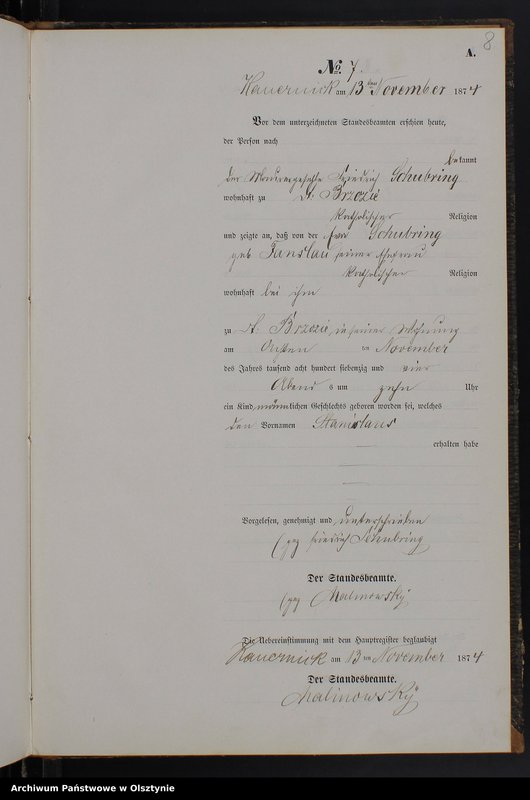 8
A.
No. 7.
Kauernick am 13 ten November 1874
Vor dem unterzeichneten Standesbeamten erschien heute,
der Person nach
bekannt
der Maurergeselle Friedrich Schubring
wohnhaft zu Brzozie
katholischer Religion
und zeigte an, daß von der Schubring
geb. seiner Ehefrau
katholischer Religion
wohnhaft bei ihm
zu Brzozie, in seiner Wohnung
am ten November
des Jahres tausend acht hundert siebenzig und vier
Abends um zehn Uhr
ein Kind männlichen Geschlechts geboren worden sei, welches
den Vornamen Stanislaus
erhalten habe
Vorgelesen, genehmigt und unterschrieben
(gez Friedrich Schubring
Der Standesbeamte.
(gez Malinowsky
Die Uebereinstimmung mit dem Hauptregister beglaubigt
Kauernick am 13 ten November 1874
Der Standesbeamte.
Malinowsky
Archiwum Państwowe w Olsztynie